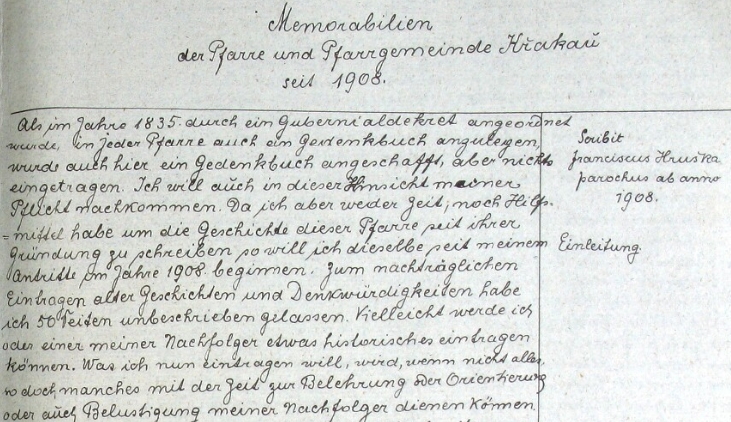 Memorabilien
der Pfarre und Pfarrgemeinde Křakau
seit 1908.
Als im Jahre 1835. durch ein Gubernialdekret angeordnet
wurde, in jeder Pfarre auch ein Gedenkbuch anzulegen,
wurde auch hier ein Gedenkbuch angeschafft, aber nichts
eingetragen. Ich will auch in dieser Hinsicht meiner
Pflicht nachkommen. Da ich aber weder Zeit, noch Hilfs-
=mittel habe um die Geschichte dieser Pfarre seit ihrer
Gründung zu schreiben so will ich dieselbe seit meinem
Antritte im Jahre 1908. beginnen. Zum nachträglichen
Eintragen alter Geschichten und Denkwürdigkeiten habe
ich 50 Seiten unbeschrieben gelassen. Vielleicht werde ich
oder einer meiner Nachfolger etwas historisches eintragen
können. Was ich nun eintragen will, wird, wenn nicht alles,
so doch manches mit der Zeit zur Belehrung oder Orientierung
oder auch Belustigung meiner Nachfolger dienen können
Scribit
franciscus Hruška
parochus ab anno
1908.
Einleitung.